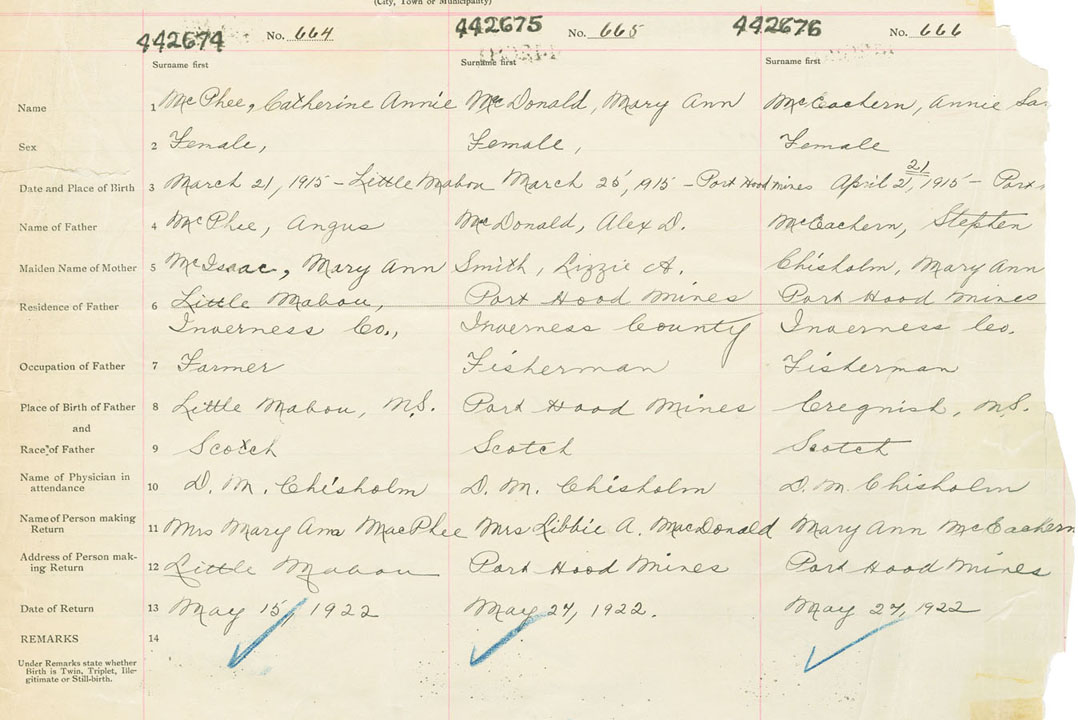 (City, Town or Municipality)
442674 No. 664 442675 No. 665 442676 No. 666
Surname first Surname first Surname first
Name 1 McPhee, Catherine Annie McDonald, Mary Ann McEachern, Annie
Sex 2 Female, Female, Female
21
Date and Place of Birth 3 March 21, 1915 - Little Mabou March 25, 1915 - Port Hood mines April 21, 1915 - Port
Name of Father 4 McPhee, Angus McDonald, Alex D. McEachern, Stephen
Maiden Name of Mother 5 McIsaac, Mary Ann Smith, Lizzie A. Chisholm, Mary Ann
Residence of Father 6 Little Mabou, Port Hood Mines Port Hood Mines
Inverness Co., Inverness County Inverness Co.
Occupation of Father 7 Farmer Fisherman Fisherman
Place of Birth of Father 8 Little Mabou, N.S. Port Hood Mines Cregnish, N.S.
and
Race of Father 9 Scotch Scotch Scotch
Name of Physician in
attendance 10 D. M. Chisholm D. M. Chisholm D. M. Chisholm
Name of Person making
Return 11 Mrs Mary Ann MacPhee Mrs Libbie A. MacDonald Mary Ann McEachern
Address of Person mak-
ing Return 12 Little Mabou Port Hood Mines Port Hood Mines
Date of Return 13 May 15, 1922 May 27, 1922. May 27, 1922
REMARKS 14
Under Remarks state whether
Birth is Twin, Triplet, Ille-
gitimate or Still-birth.